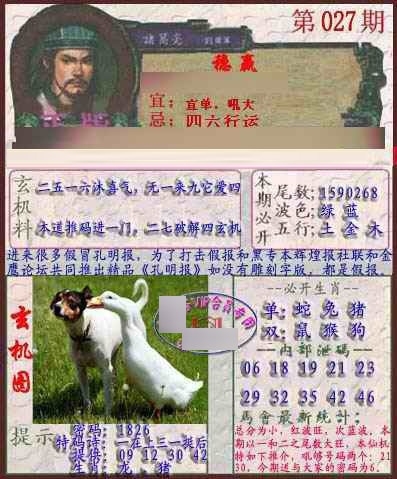 第027期
诸葛亮
稳赢
宜：宜单，吼大
忌：四六行运
玄机料
二五一六沐喜气，无一来九它爱四
本道推码进一门，二七破解四玄机
本期必开
尾数；1590268
波色；绿 蓝
五行；土 金 木
进来很多假冒孔明报，为了打击假报和黑专本辉煌报社联和金
鹰论坛共同推出精品《孔明报》如没有雕刻字版，都是假报。
玄机图
必开生肖
单：蛇 兔 猪
双：鼠 猴 狗
内部泄码
06 18 19 21 23
29 32 35 42 46
馬會最新统计：
总分为小，红波旺，次蓝波，本
期以一和二之尾数大旺，本仙机
特如下推介，吼够号码两个：21
30，今期送与大家的密码为6。
提示
密码：1826
特码诗：一在十三一挺后
提供：09 12 30 42
生肖：龙，猪